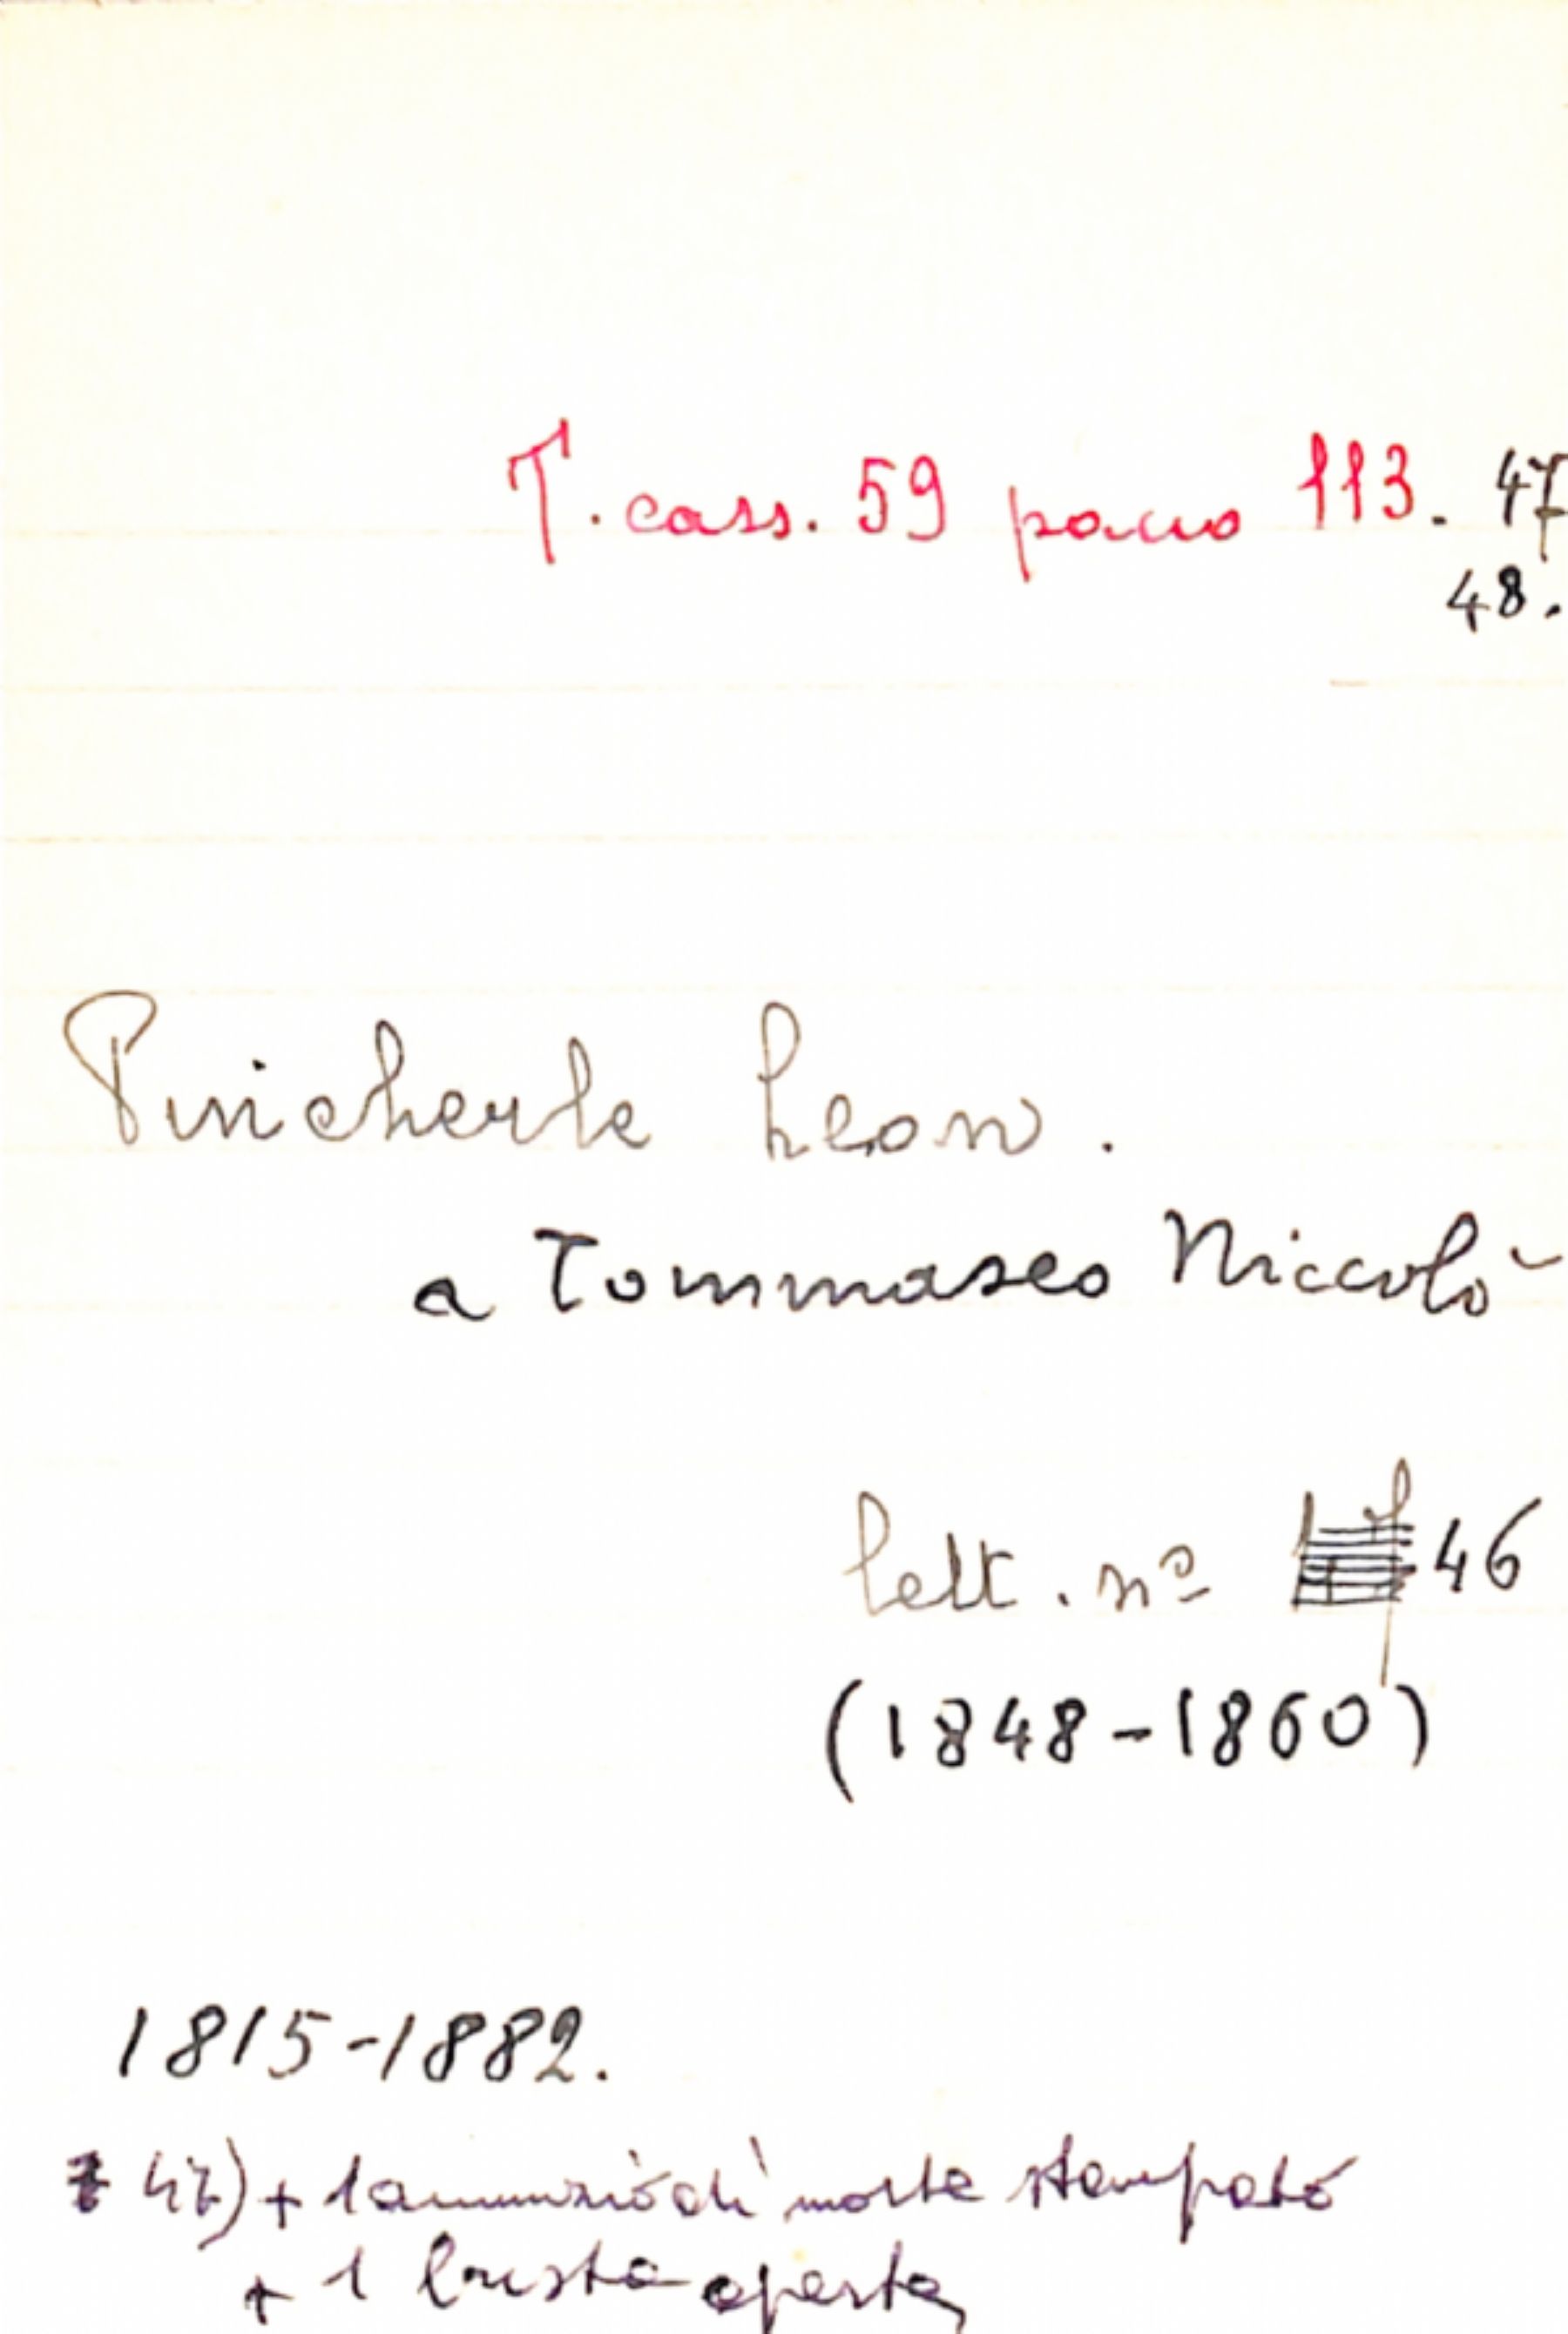 T. cass. 59 pacco 113. 47
48.
Pincherle Leon.
a Tommaseo Niccolò
lett. nº 46
(1848-1860)
1815-1882.
47) + 1 annunzio di morte stampato
+ 1 busta aperta